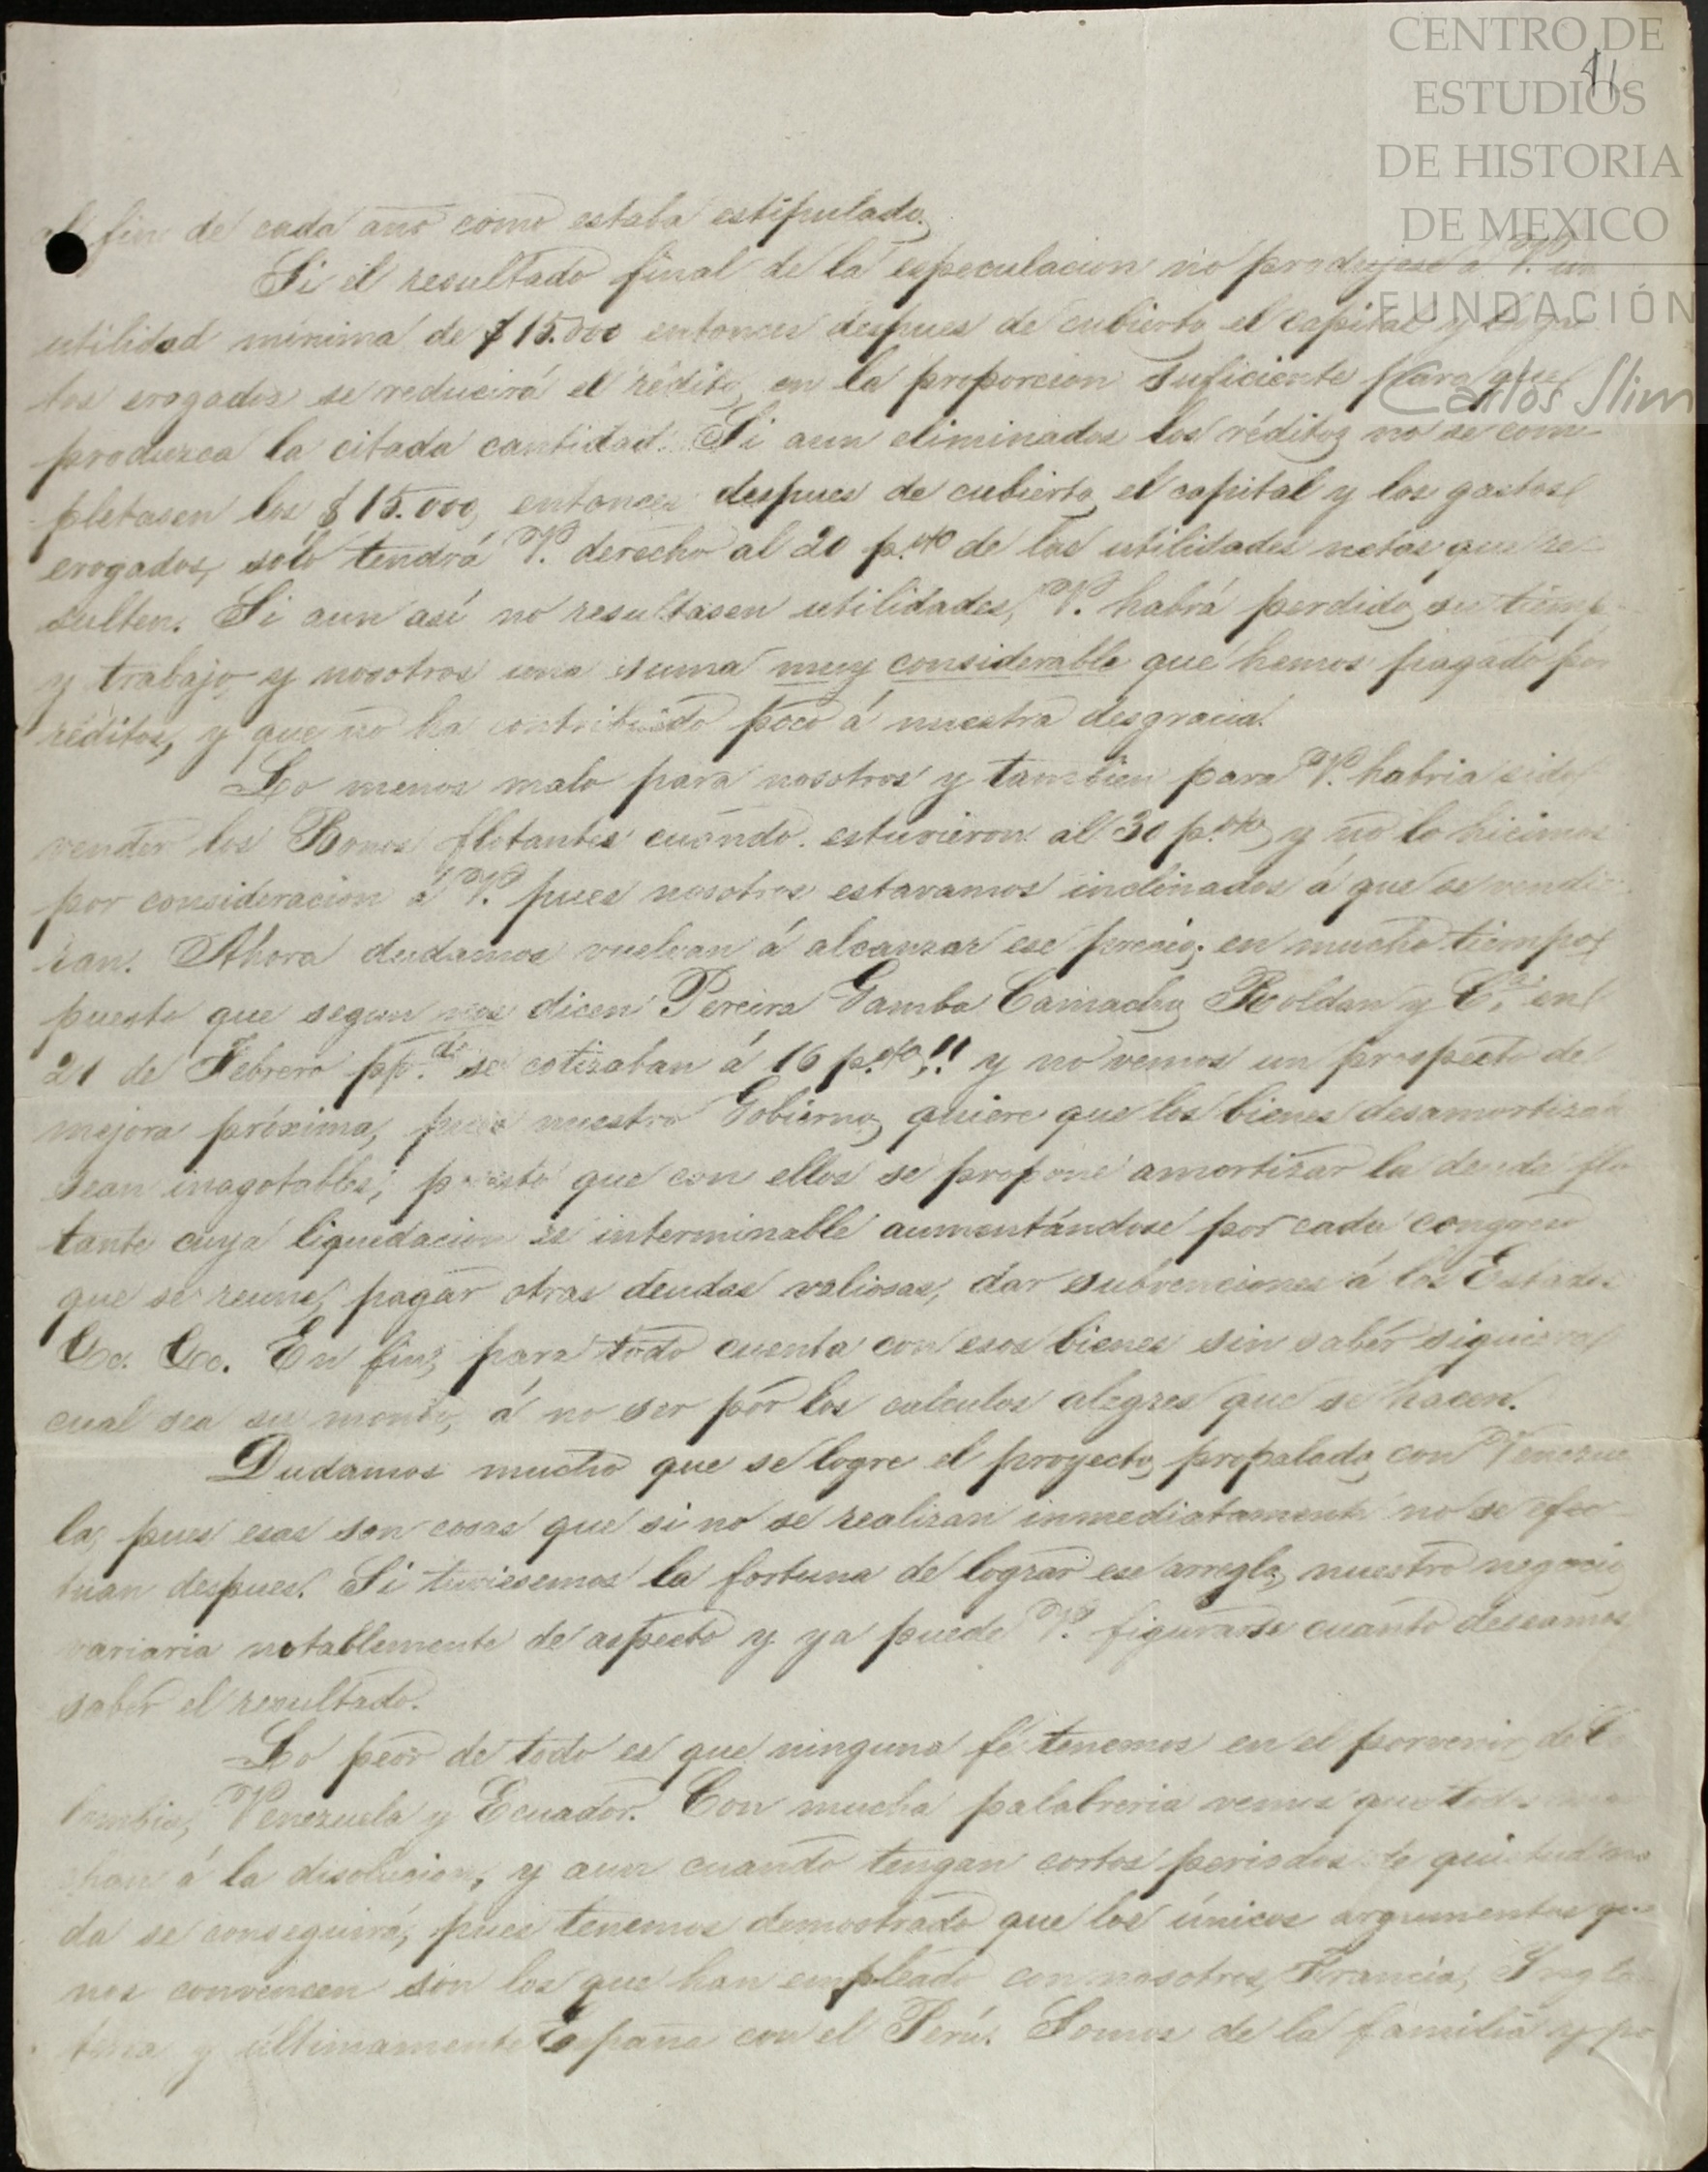 CENTRO DE
ESTUDIOS
DE HISTORIA
DE MEXICO
FUNDACIÓN
Carlos Slim
41
al fin de cada año como estaba estipulado.
Si el resultado final de la especulacion no produjese á V. una
utilidad mínima de $15.000 entonces despues de cubierto el capital y los gas
tos erogados se reducirá el rédito, en la proporcion suficiente para que
produzca la citada cantidad. Si aun eliminados los réditos no se com-
pletasen los $15.000, entonces despues de cubierto el capital y los gastos
erogados, solo tendrá V. derecho al 20 p.oto de las utilidades netas que re-
sulten. Si aun así no resultasen utilidades, V. habrá perdido su tiempo
y trabajo y nosotros una suma muy considerable que hemos pagado por
réditos, y que no ha contribuido poco á nuestra desgracia.
Lo menos malo para nosotros y tambien para V. habria sido
vender los Bonos flotantes cuando estuvieron al 30 p.oto, y no lo hicimos
por consideracion á V. pues nosotros estavamos inclinados á que se vendie-
ran. Ahora dudamos vuelvan á alcanzar ese precio en mucho tiempo
puesto que segun nos dicen Pereira Gamba Camacho Roldan y C.ª en
21 de Febrero pp.do se cotizaban á 16 p.oto,!! y no vemos un prospecto de
mejora próxima, pues nuestro Gobierno, quiere que los bienes desamortizados
sean inagotables, puesto que con ellos se propone amortizar la deuda flo
tante cuya liquidacion es interminable aumentándose por cada congreso
que se reune, pagar otras deudas valiosas, dar subvenciones á los Estados
&c. &c. En fin, para todo cuenta con esos bienes sin saber siquiera
cual sea su monto, á no ser por los calculos alegres que se hacen.
Dudamos mucho que se logre el proyecto, propalado, con Venezue
la, pues esas son cosas que si no se realizan inmediatamente no se efec-
tuan despues. Si tuviesemos la fortuna de lograr ese arreglo, nuestro negocio
variaria notablemente de aspecto y ya puede V. figurarse cuanto deseamos
saber el resultado.
Lo peor de todo es que ninguna fé tenemos en el porvenir de Co
lombia, Venezuela y Ecuador. Con mucha palabreria vemos que todos mar
chan á la disolucion, y aun cuando tengan cortos periodos de quietud na
da se conseguirá, pues tenemos demostrado que los únicos argumentos que
nos convencen son los que han empleado con nosotros, Francia, Ingla
terra y últimamente España con el Perú. Somos de la familia y po